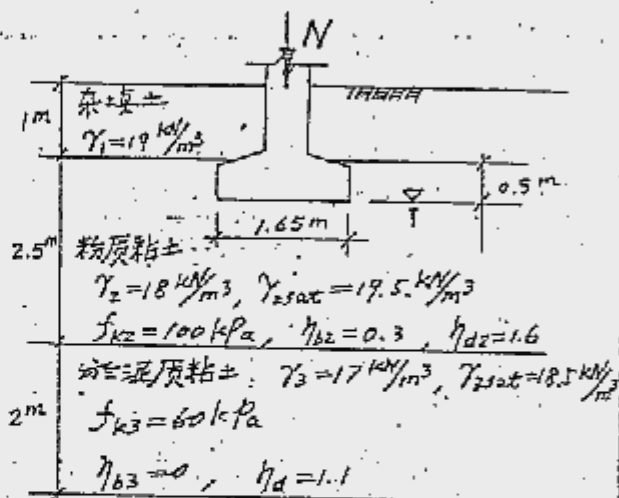 N
1m
杂填土
γ₁=19 kN/m³
0.5m
1.65m
2.5m
粉质粘土
γ₂=18 kN/m³, γ₂sat=19.5 kN/m³
fk2=100 kPa, ηb2=0.3, ηd2=1.6
淤泥质粘土: γ₃=17 kN/m³, γ₂sat=18.5 kN/m³
2m
fk3=60 kPa
ηb3=0, ηd=1.1